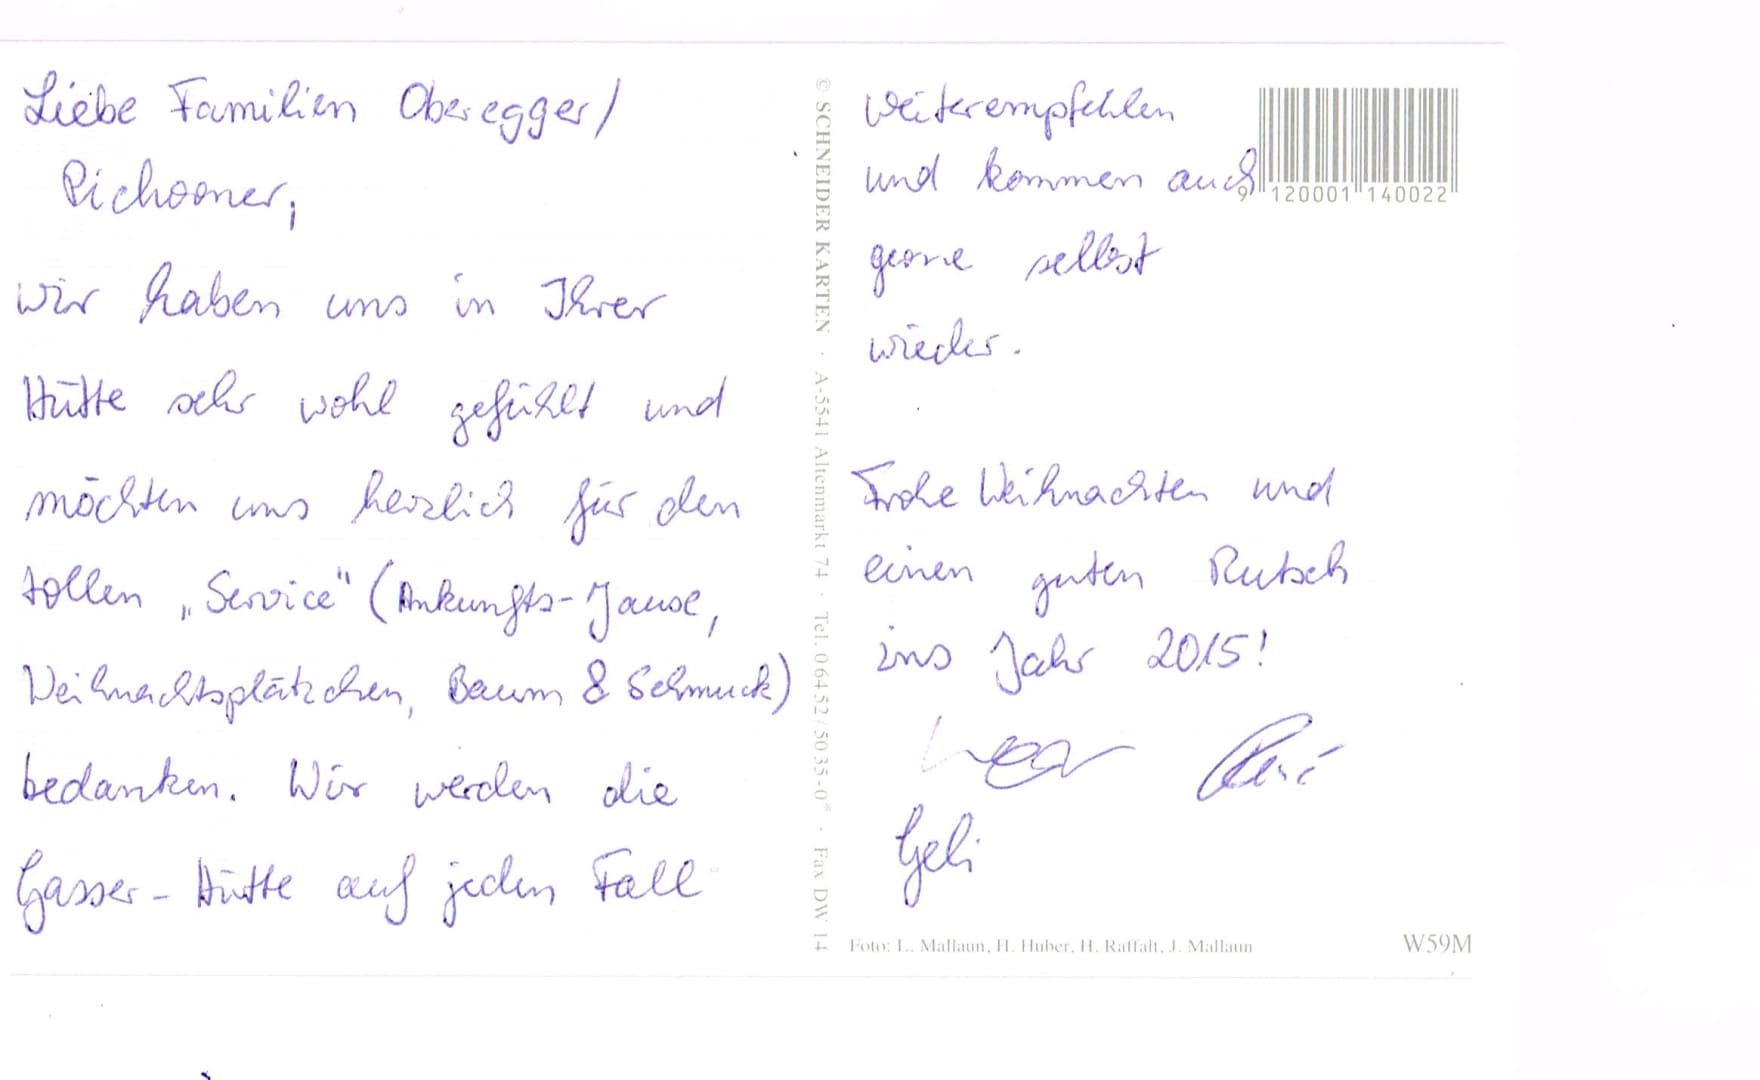 Liebe Familien Oberegger/
Pichorner,
wir haben uns in Ihrer
Hütte sehr wohl gefühlt und
möchten uns herzlich für den
tollen „Service" (Ankunfts-Jause,
Weihnachtsplätzchen, Baum & Schmuck)
bedanken. Wir werden die
Gasser-Hütte auf jeden Fall
© SCHNEIDER KARTEN · A-5541 Altenmarkt 74 · Tel. 06452/5035-0* · Fax DW 14
weiterempfehlen
und kommen auch
gerne selbst
wieder.
Frohe Weihnachten und
einen guten Rutsch
ins Jahr 2015!
René
Geli
9 120001 140022
Foto: L. Mallaun, H. Huber, H. Raffalt, J. Mallaun
W59M